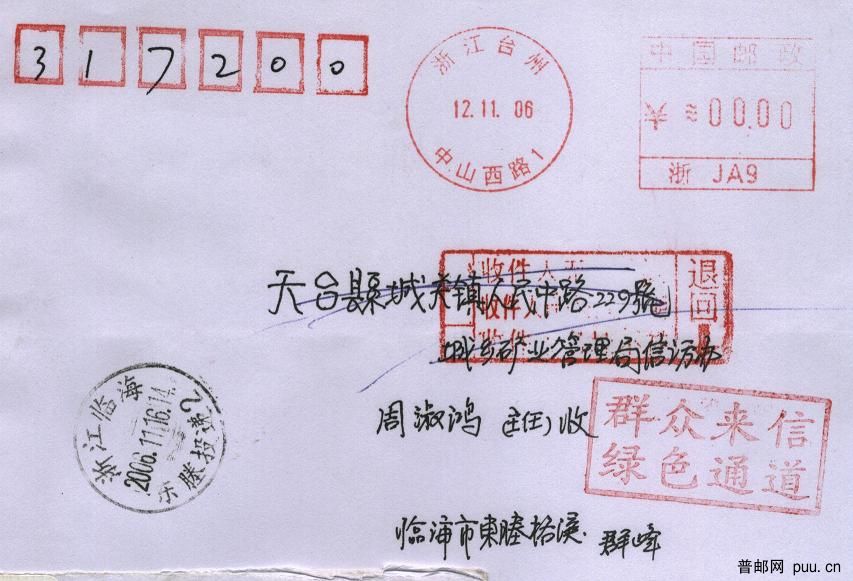 317200
浙江台州
12.11.06
中山西路1
中国邮政
00.00
浙 JA9
收件人
收件人
收件
退回
天台縣城关镇人民中路229號
城乡矿业管理局信访办
周淑鸿 (主任) 收
群众来信
绿色通道
浙江临海
2006.11.16.14
投递2
群峰
普邮网 puu.cn